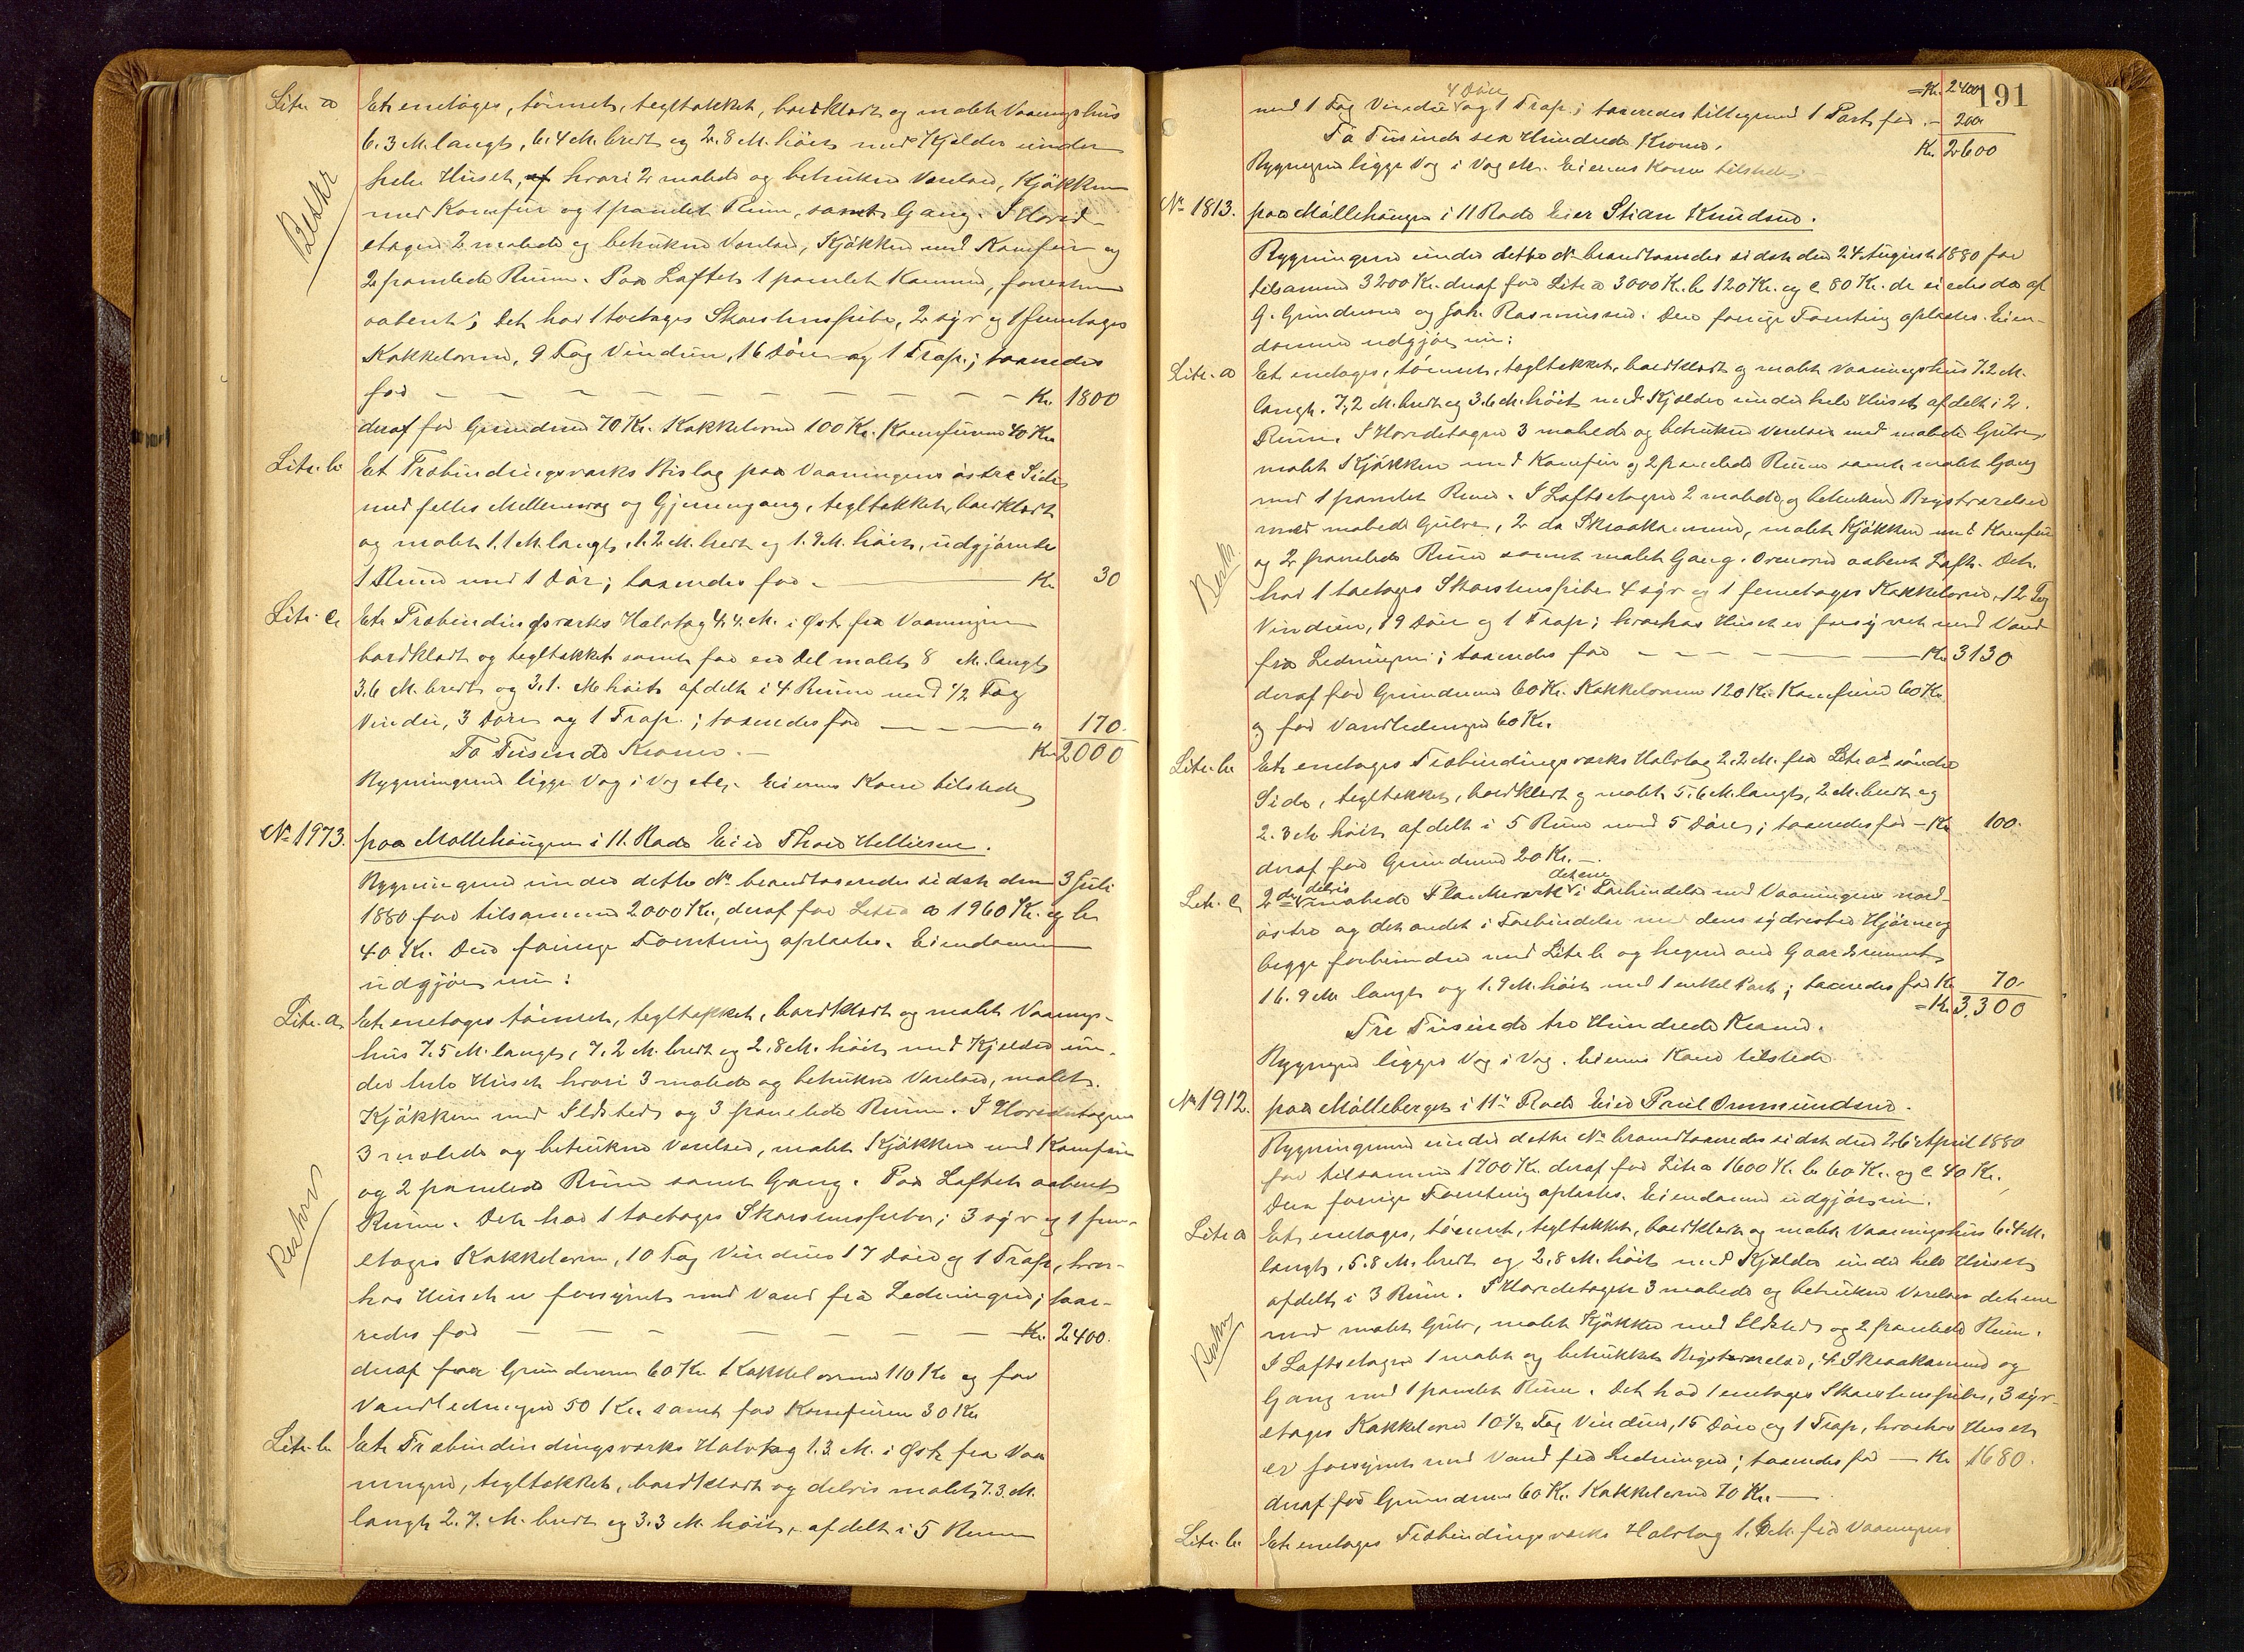 Litr. a Et enetages, tømret, tegltækket, bordklædt og malet Vaaningshus
6.3 M. langt, 6.4 M. bredt og 2.8 M. høit med Kjelder under
hele Huset, hvori 2 malede og betrukne Værelser, Kjøkken
Beskr
med Komfur og 1 panelet Rum, samt Gang. I Hoved-
etagen 2 malede og betrukne Værelser, Kjøkken med Komfur og
2 panelede Rum. Paa Loftet 1 panelet Kammer, forresten
aabent; Det har 1 toetages Skorstenspibe, 2 syv og 1 femetages
Kakkelovne, 9 Fag Vinduer, 16 Døre og 1 Trap.; taxeredes
for — — — — — — — — — Kr. 1800
deraf for Grunden 70 Kr. Kakkelovne 100 Kr. Komfurene 40 Kr.
Litr. b. Et Træbindingsværks Bislag paa Vaaningens østre Side
med fælles Mellemvæg og Gjennemgang, tegltækket, bordklædt
og malet 1.1 M. langt, 1.2 M. bredt og 1.9 M. høit, udgjørende
1 Rum med 1 Dør; taxeredes for — Kr. 30
Litr. c. Et Træbindingsværks Halvtag 4.4. M. i Øst fra Vaaningen
bordklædt og tegltækket samt for en Del malet 8 M. langt
3.6 M. bredt og 3.1. M. høit afdelt i 4 Rum med 1/2 Fag
Vindu, 3 Døre og 1 Trap.; taxeredes for — — — " 170.
To Tusinde Kroner. — Kr. 2000
Bygningerne ligger Væg i Væg etc. Eierens Kone tilstede
No 1973. paa Møllehaugen i 11. Rode Eier Thore Helliesen.
Bygningerne under dette No brandtaxeredes sidst den 3 Juli
1880 for tilsammen 2000 Kr., deraf for Litra a 1960 Kr. og b
40 Kr. Den forrige Forretning oplæstes. Eiendommen
udgjør nu:
Litr. a. Et enetages tømret, tegltækket, bordklædt og malet Vaanings-
hus 7.5 M. langt, 7.2 M. bredt og 2.8 M. høit med Kjelder un-
der hele Huset hvori 3 malede og betrukne Værelser, malet
Kjøkken med Ildsted og 3 panelede Rum. I Hovedetagen
3 malede og betrukne Værelser, malet Kjøkken med Komfur
Beskrev
og 2 panelede Rum samt Gang. Paa Loftet aabent
Rum. Det har 1 toetages Skorstenspibe; 3 syv og 1 fem-
etages Kakkelovn, 10 Fag Vinduer 17 Døre og 1 Trap, hvor-
hos Huset er forsynet med Vand fra Ledningen; taxe-
redes for — — — — — — — Kr. 2400.
deraf for Grunden 60 Kr. Kakkelovne 110 Kr og for
Vandledningen 50 Kr. samt for Komfuren 30 Kr
Litr. b. Et Træbindindingsværks Halvtag 1.3 M. i Øst fra Vaa
ningen, tegltækket, bordklædt og delvis malet 7.3. M.
langt 2.7. M. bredt og 3.3 M. høit, afdelt i 5 Rum
191
Kr. 2400
4 Døre
med 1 Fag Vindu og 1 Trap.; taxeredes tilligemed 1 Port for — 200
To Tusinde sex Hundrede Kroner. Kr. 2600
Bygningen ligger Væg i Væg etc. Eierens Kone tilstede —
No 1813. paa Møllehaugen i 11 Rode Eier Stian Knudsen.
Bygningerne under dette No brandtaxeredes sidst den 24 August 1880 for
tilsammen 3200 Kr. deraf for Litr a 3000 Kr. b 120 Kr. og c 80 Kr. de eiedes da af
G. Gundersen og Joh. Rasmussen. Den forrige Forretning oplæstes. Eien-
dommen udgjør nu:
Litr. a Et enetages, tømret, tegltækket, bordklædt og malet Vaaningshus 7.2 M.
langt. 7,2 M. bredt og 3.6 M. høit med Kjelder under hele Huset afdelt i 2.
Rum. I Hovedetagen 3 malede og betrukne Værelser med malede Gulve,
malet Kjøkken med Komfur og 2 panelede Rum samt malet Gang
med 1 panelet Rum. I Loftsetagen 2 malede og betrukne Brystværelser
med malede Gulve, 2 do Skraakammer, malet Kjøkken med Komfur
Beskr.
og 2 panelede Rum samt malet Gang. Ovenover aabent Loft. Det
har 1 toetages Skorstenspibe 4 syv og 1 femetages Kakkelovne, 12 Fag
Vinduer, 19 Døre og 1 Trap; hvorhos Huset er forsynet med Vand
fra Ledningen; taxeredes for — — — — Kr. 3130
deraf for Grunden 60 Kr. Kakkelovne 120 Kr. Komfurene 60 Kr.
og for Vandledningen 60 Kr.
Litr. b. Et enetages Træbindingsværks Halvtag 2.2 M. fra Litr. a's søndre
Side, tegltækket, bordklædt og malet 5.6 M. langt, 2 M. bredt og
2.3 M. høit afdelt i 5 Rum med 5 Døre; taxeredes for — Kr. 100.
deraf for Grunden 20 Kr. —.
delvis det ene
Litr. c. 2de malede Plankeværk i Forbindelse med Vaaningens nord-
østre og det andet i Forbindelse med dens sydvestre Hjørne og
begge forbundne med Litr. b og hegner om Gaardsrummet
16.9 M. langt og 1.9 M. høit med 1 enkel Port; taxeredes for Kr. 70.
Kr. 3,300
Tre Tusinde tre Hundrede Kroner.
Bygningen ligger Væg i Væg. Eierens Kone tilstede.
No 1912. paa Mølleberget i 11te Rode Eier Poul Ommundsen.
Bygningerne under dette No brandtaxeredes sidst den 26 April 1880
for tilsammen 1700 Kr. deraf for Litr a 1600 Kr. b 60 Kr. og c. 40 Kr.
Den forrige Forretning oplæstes. Eiendommen udgjør nu.
Litr. a Et enetages, tømret, tegltækket, bordklædt og malet Vaaningshus 6.4 M.
langt, 5.8 M. bredt og 2,8 M. høit med Kjelder under hele Huset
afdelt i 3 Rum. I Hovedetagen 3 malede og betrukne Værelser det ene
Beskrev
med malet Gulv, malet Kjøkken med Ildsted og 2 panelede Rum.
I Loftsetagen 1 malet og betrukket Brystværelse, 4 Skraakammer og
Gang med 1 panelet Rum. Det har 1 enetages Skorstenspibe, 3 syv-
etages Kakkelovne 10 1/2 Fag Vinduer, 15 Døre og 1 Trap, hvorhos Huset
er forsynet med Vand fra Ledningen; taxeredes for — Kr. 1680.
deraf for Grunden 60 Kr. Kakkelovne 70 Kr. —
Litr. b. Et enetages Træbindingsværks Halvtag 1.6 M. fra Vaaningens